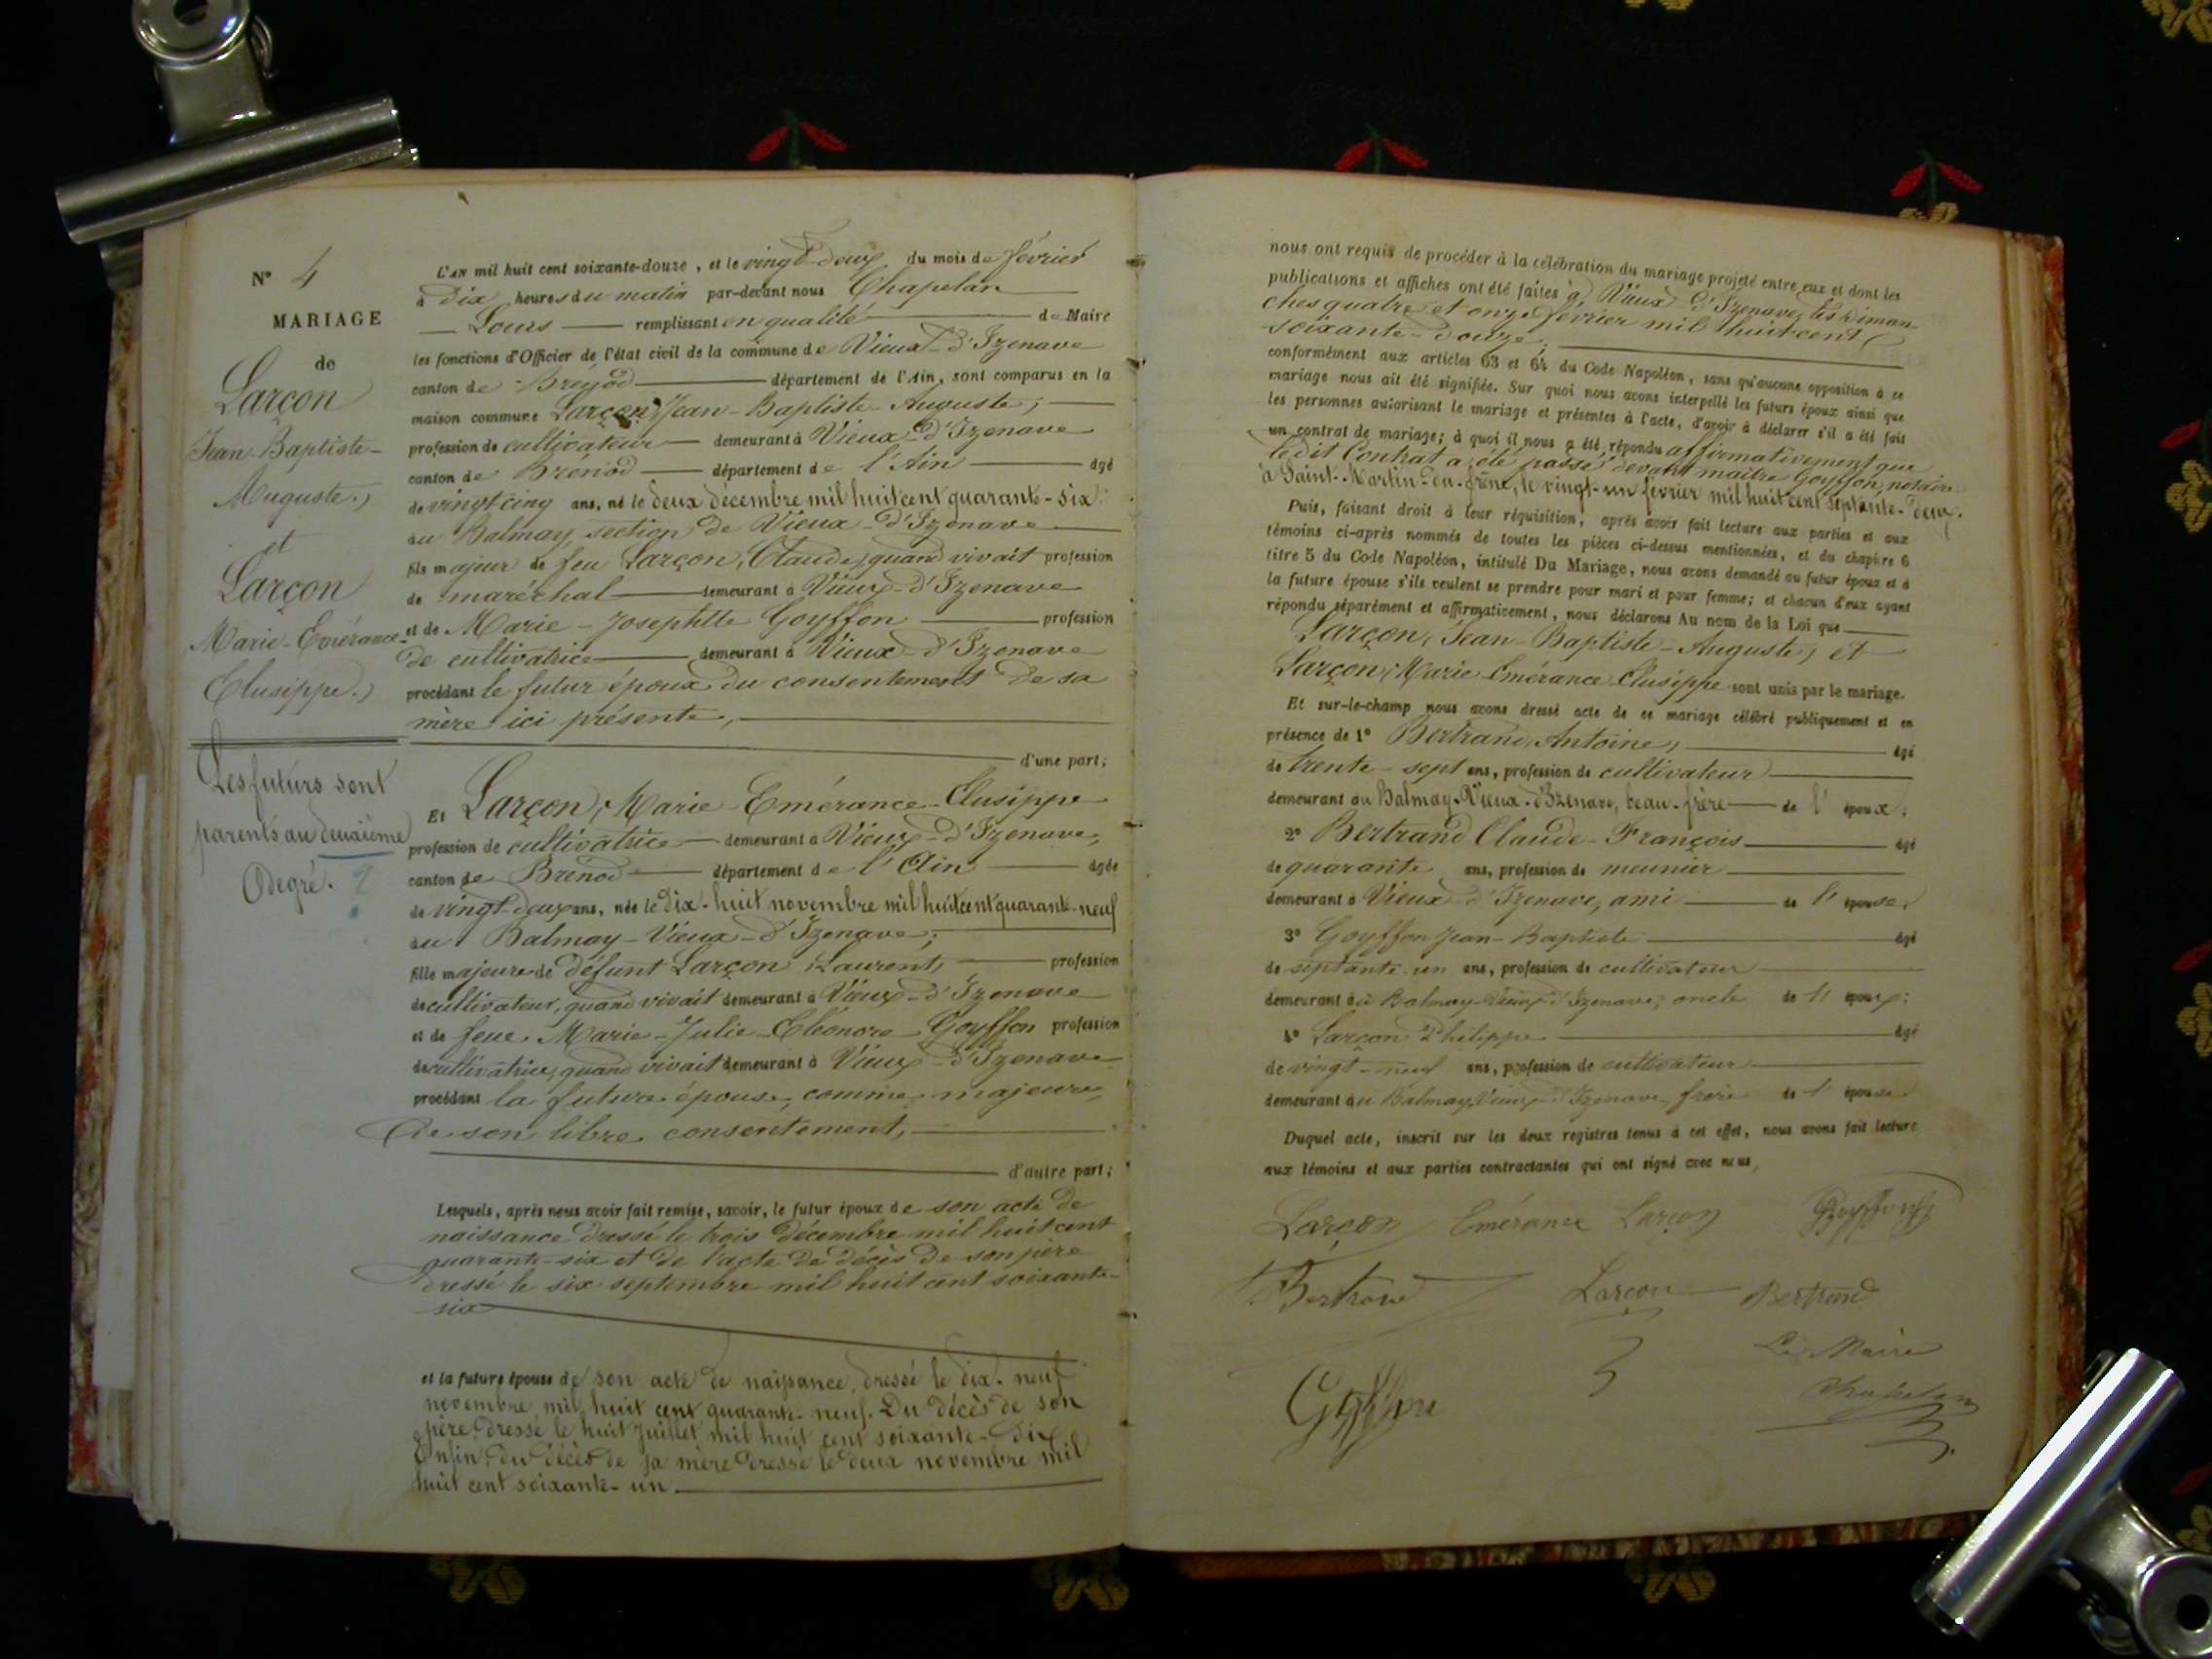 N° 4
MARIAGE
de
Larçon
Jean-Baptiste-
Auguste.)
et
Larçon
Marie-Emérance-
Clusippe.)
Les futurs sont
parents au deuxième
Degré.
L'AN mil huit cent soixante-douze, et le vingt-deux du mois de février
à dix heures du matin par-devant nous Chapelan
Louis remplissant en qualité de Maire
les fonctions d'Officier de l'état civil de la commune de Vieux-d'Izenave
canton de Brénod département de l'Ain, sont comparus en la
maison commune Larçon, Jean-Baptiste-Auguste;
profession de cultivateur demeurant à Vieux-d'Izenave
canton de Brénod département de l'Ain âgé
de vingt-cinq ans, né le deux décembre mil huit cent quarante-six
au Balmay, section de Vieux-d'Izenave
fils majeur de feu Larçon, Claude, quand vivait profession
de maréchal demeurant à Vieux-d'Izenave
et de Marie-Josephtte Goyffon profession
de cultivatrice demeurant à Vieux-d'Izenave
procédant le futur époux du consentement de sa
mère ici présente,
d'une part;
Et Larçon, Marie-Emérance-Clusippe
profession de cultivatrice demeurant à Vieux-d'Izenave,
canton de Brénod département de l'Ain âgée
de vingt-deux ans, née le dix-huit novembre mil huit cent quarante-neuf
au Balmay-Vieux-d'Izenave;
fille majeure de défunt Larçon, Laurent, profession
de cultivateur, quand vivait demeurant à Vieux-d'Izenave
et de feue Marie-Julie-Eléonore Goyffon profession
de cultivatrice, quand vivait demeurant à Vieux-d'Izenave
procédant la future épouse, comme majeure,
de son libre consentement,
d'autre part;
Lesquels, après nous avoir fait remise, savoir, le futur époux de son acte de
naissance dressé le trois décembre mil huit cent
quarante-six et de l'acte de décès de son père
dressé le six septembre mil huit cent soixante-
six
et la future épouse de son acte de naissance, dressé le dix-neuf
novembre mil huit cent quarante-neuf. Du décès de son
père dressé le huit Juillet mil huit cent soixante-dix
Enfin du décès de sa mère dressé le deux novembre mil
huit cent soixante-un.
nous ont requis de procéder à la célébration du mariage projeté entre eux et dont les
publications et affiches ont été faites à Vieux-d'Izenave, les diman-
ches quatre et onze février mil huit cent
soixante-douze,
conformément aux articles 63 et 64 du Code Napoléon, sans qu'aucune opposition à ce
mariage nous ait été signifiée. Sur quoi nous avons interpellé les futurs époux ainsi que
les personnes autorisant le mariage et présentes à l'acte, d'avoir à déclarer s'il a été fait
un contrat de mariage; à quoi il nous a été répondu affirmativement que
ledit Contrat a été passé devant maître Goyffon, notaire
à Saint-Martin-du-frêne, le vingt-un février mil huit cent septante-deux.
Puis, faisant droit à leur réquisition, après avoir fait lecture aux parties et aux
témoins ci-après nommés de toutes les pièces ci-dessus mentionnées, et du chapitre 6
titre 5 du Code Napoléon, intitulé Du Mariage, nous avons demandé au futur époux et à
la future épouse s'ils veulent se prendre pour mari et pour femme; et chacun d'eux ayant
répondu séparément et affirmativement, nous déclarons Au nom de la Loi que
Larçon, Jean-Baptiste-Auguste, et
Larçon, Marie-Emérance-Clusippe sont unis par le mariage.
Et sur-le-champ nous avons dressé acte de ce mariage célébré publiquement et en
présence de 1° Bertrand, Antoine, âgé
de trente-sept ans, profession de cultivateur
demeurant au Balmay-Vieux-d'Izenave, beau-frère de l'époux;
2° Bertrand Claude-François âgé
de quarante ans, profession de meunier
demeurant à Vieux-d'Izenave, ami de l'épouse,
3° Goyffon Jean-Baptiste âgé
de septante-un ans, profession de cultivateur
demeurant au Balmay-Vieux-d'Izenave, oncle de l'époux;
4° Larçon Philippe âgé
de vingt-neuf ans, profession de cultivateur
demeurant au Balmay, Vieux-d'Izenave, frère de l'épouse
Duquel acte, inscrit sur les deux registres tenus à cet effet, nous avons fait lecture
aux témoins et aux parties contractantes qui ont signé avec nous,
Larçon Emérance Larçon Goyffon
Bertrand Larçon Bertrand
Le Maire
Goyffon Chapelan